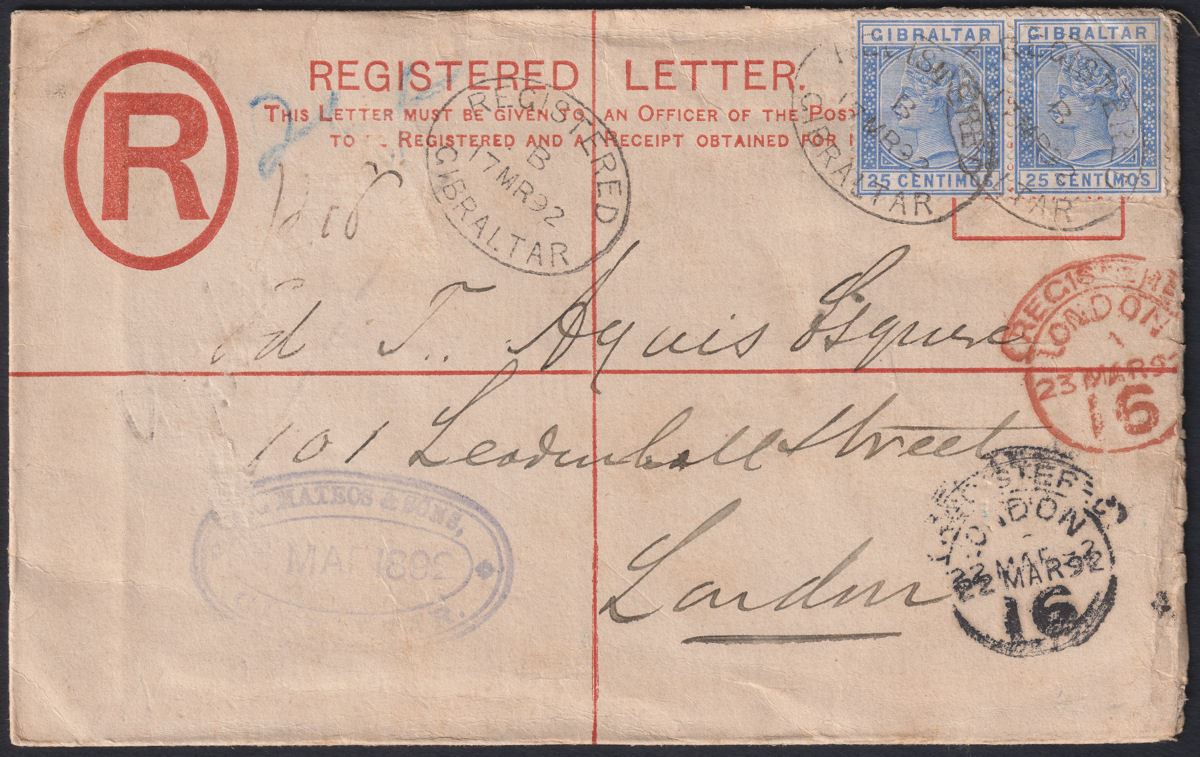 R
REGISTERED LETTER.
THIS LETTER MUST BE GIVEN TO AN OFFICER OF THE POST
TO BE REGISTERED AND A RECEIPT OBTAINED FOR I
GIBRALTAR
25 CENTIMOS
GIBRALTAR
25 CENTIMOS
REGISTERED
B
17 MR 92
GIBRALTAR
REGISTERED
B
17 MR 92
GIBRALTAR
REGISTERED
B
MR 92
TAR
2
T. Aguis Esquire
101 Leadenhall Street
London
REGISTERE
LONDON
1
23 MAR 92
16
REGISTERE
LONDON
22 MAR 92
16
MATEOS & SONS,
MAR 1892